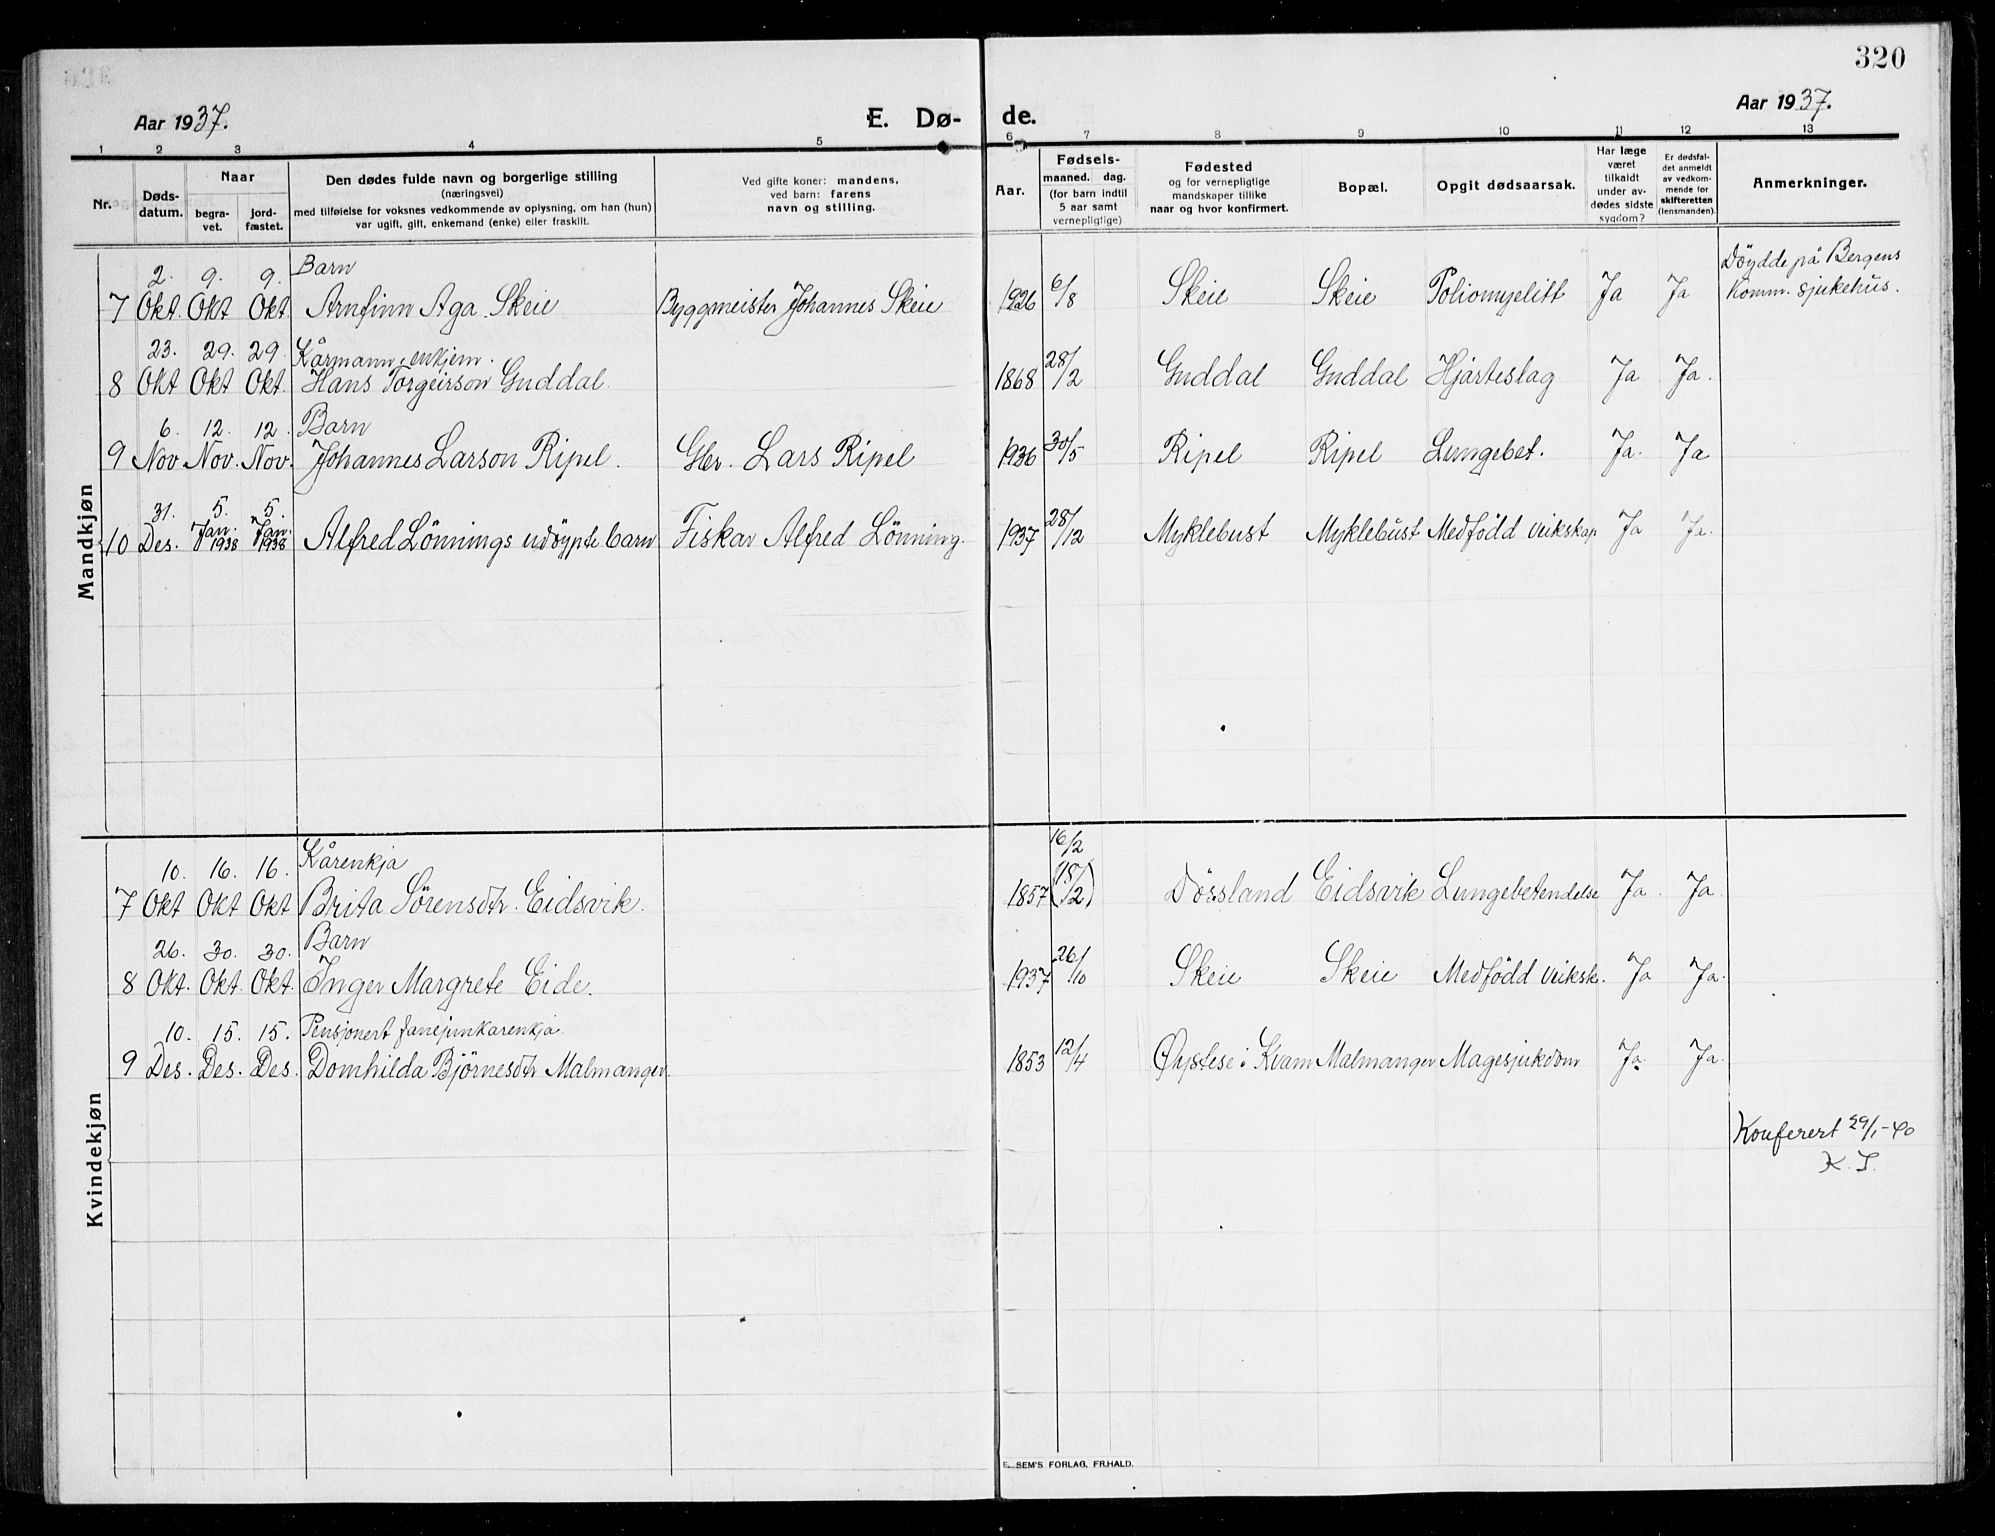 320
Aar 1937.
E. Dø-
de.
Aar 1937.
1 2 3 4 5 6 7 8 9 10 11 12 13
Nr.
Døds-
datum.
Naar
begra-
vet.
jord-
fæstet.
Den dødes fulde navn og borgerlige stilling
(næringsvei)
med tilføielse for voksnes vedkommende av oplysning, om han (hun)
var ugift, gift, enkemand (enke) eller fraskilt.
Ved gifte koner: mandens,
ved barn: farens
navn og stilling.
Aar.
Fødsels-
maaned. dag.
(for barn indtil
5 aar samt
vernepligtige)
Fødested
og for vernepligtige
mandskaper tillike
naar og hvor konfirmert.
Bopæl.
Opgit dødsaarsak.
Har læge
været
tilkaldt
under av-
dødes sidste
sygdom?
Er dødsfal-
det anmeldt
av vedkom-
mende for
skifteretten
(lensmanden).
Anmerkninger.
Mandkjøn
2. 9. 9. Barn Døydde på Bergens
7 Okt. Okt Okt. Arnfinn Aga Skeie Byggmeister Johannes Skeie 1926 6/8 Skeie Skeie Poliomyelitt Ja Ja Komm. sjukehus.
23. 29. 29. Kårmann, enkjem.
8 Okt Okt Okt. Hans Torgeirson Guddal. 1868 28/2 Guddal Guddal Hjarteslag Ja Ja.
6. 12. 12. Barn
9 Nov Nov. Nov. Johannes Larson Ripel. Gbr. Lars Ripel 1936 30/5 Ripel Ripel Lungebet. Ja. Ja
31. 5. 5.
10 Des. Jan. 1938 Jan. 1938 Alfred Lönnings udöypte barn Fiskar Alfred Lönning. 1937 28/12 Myklebust Myklebust Medfödd veikskap Ja Ja.
Kvindekjøn
10. 16. 16. Kårenkja 16/2
7 Okt Okt Okt Brita Sörensdtr. Eidsvik. 1857 (15/2) Dössland Eidsvik Lungebetendelse Ja. Ja.
26. 30. 30. Barn
8 Okt. Okt. Okt. Inger Margrete Eide. 1937 26/10 Skeie Skeie Medfödd veiksk. Ja Ja.
10. 15. 15. Pensjonert fanejunkarenkja
9 Des. Des. Des. Domhilda Björnesdtr Malmanger. 1853 12/4 Øystese i Kvam Malmanger Magesjukdom Ja. Ja.
Konferert 29/1-40
K. S.
E. SEM'S FORLAG, FR.HALD.